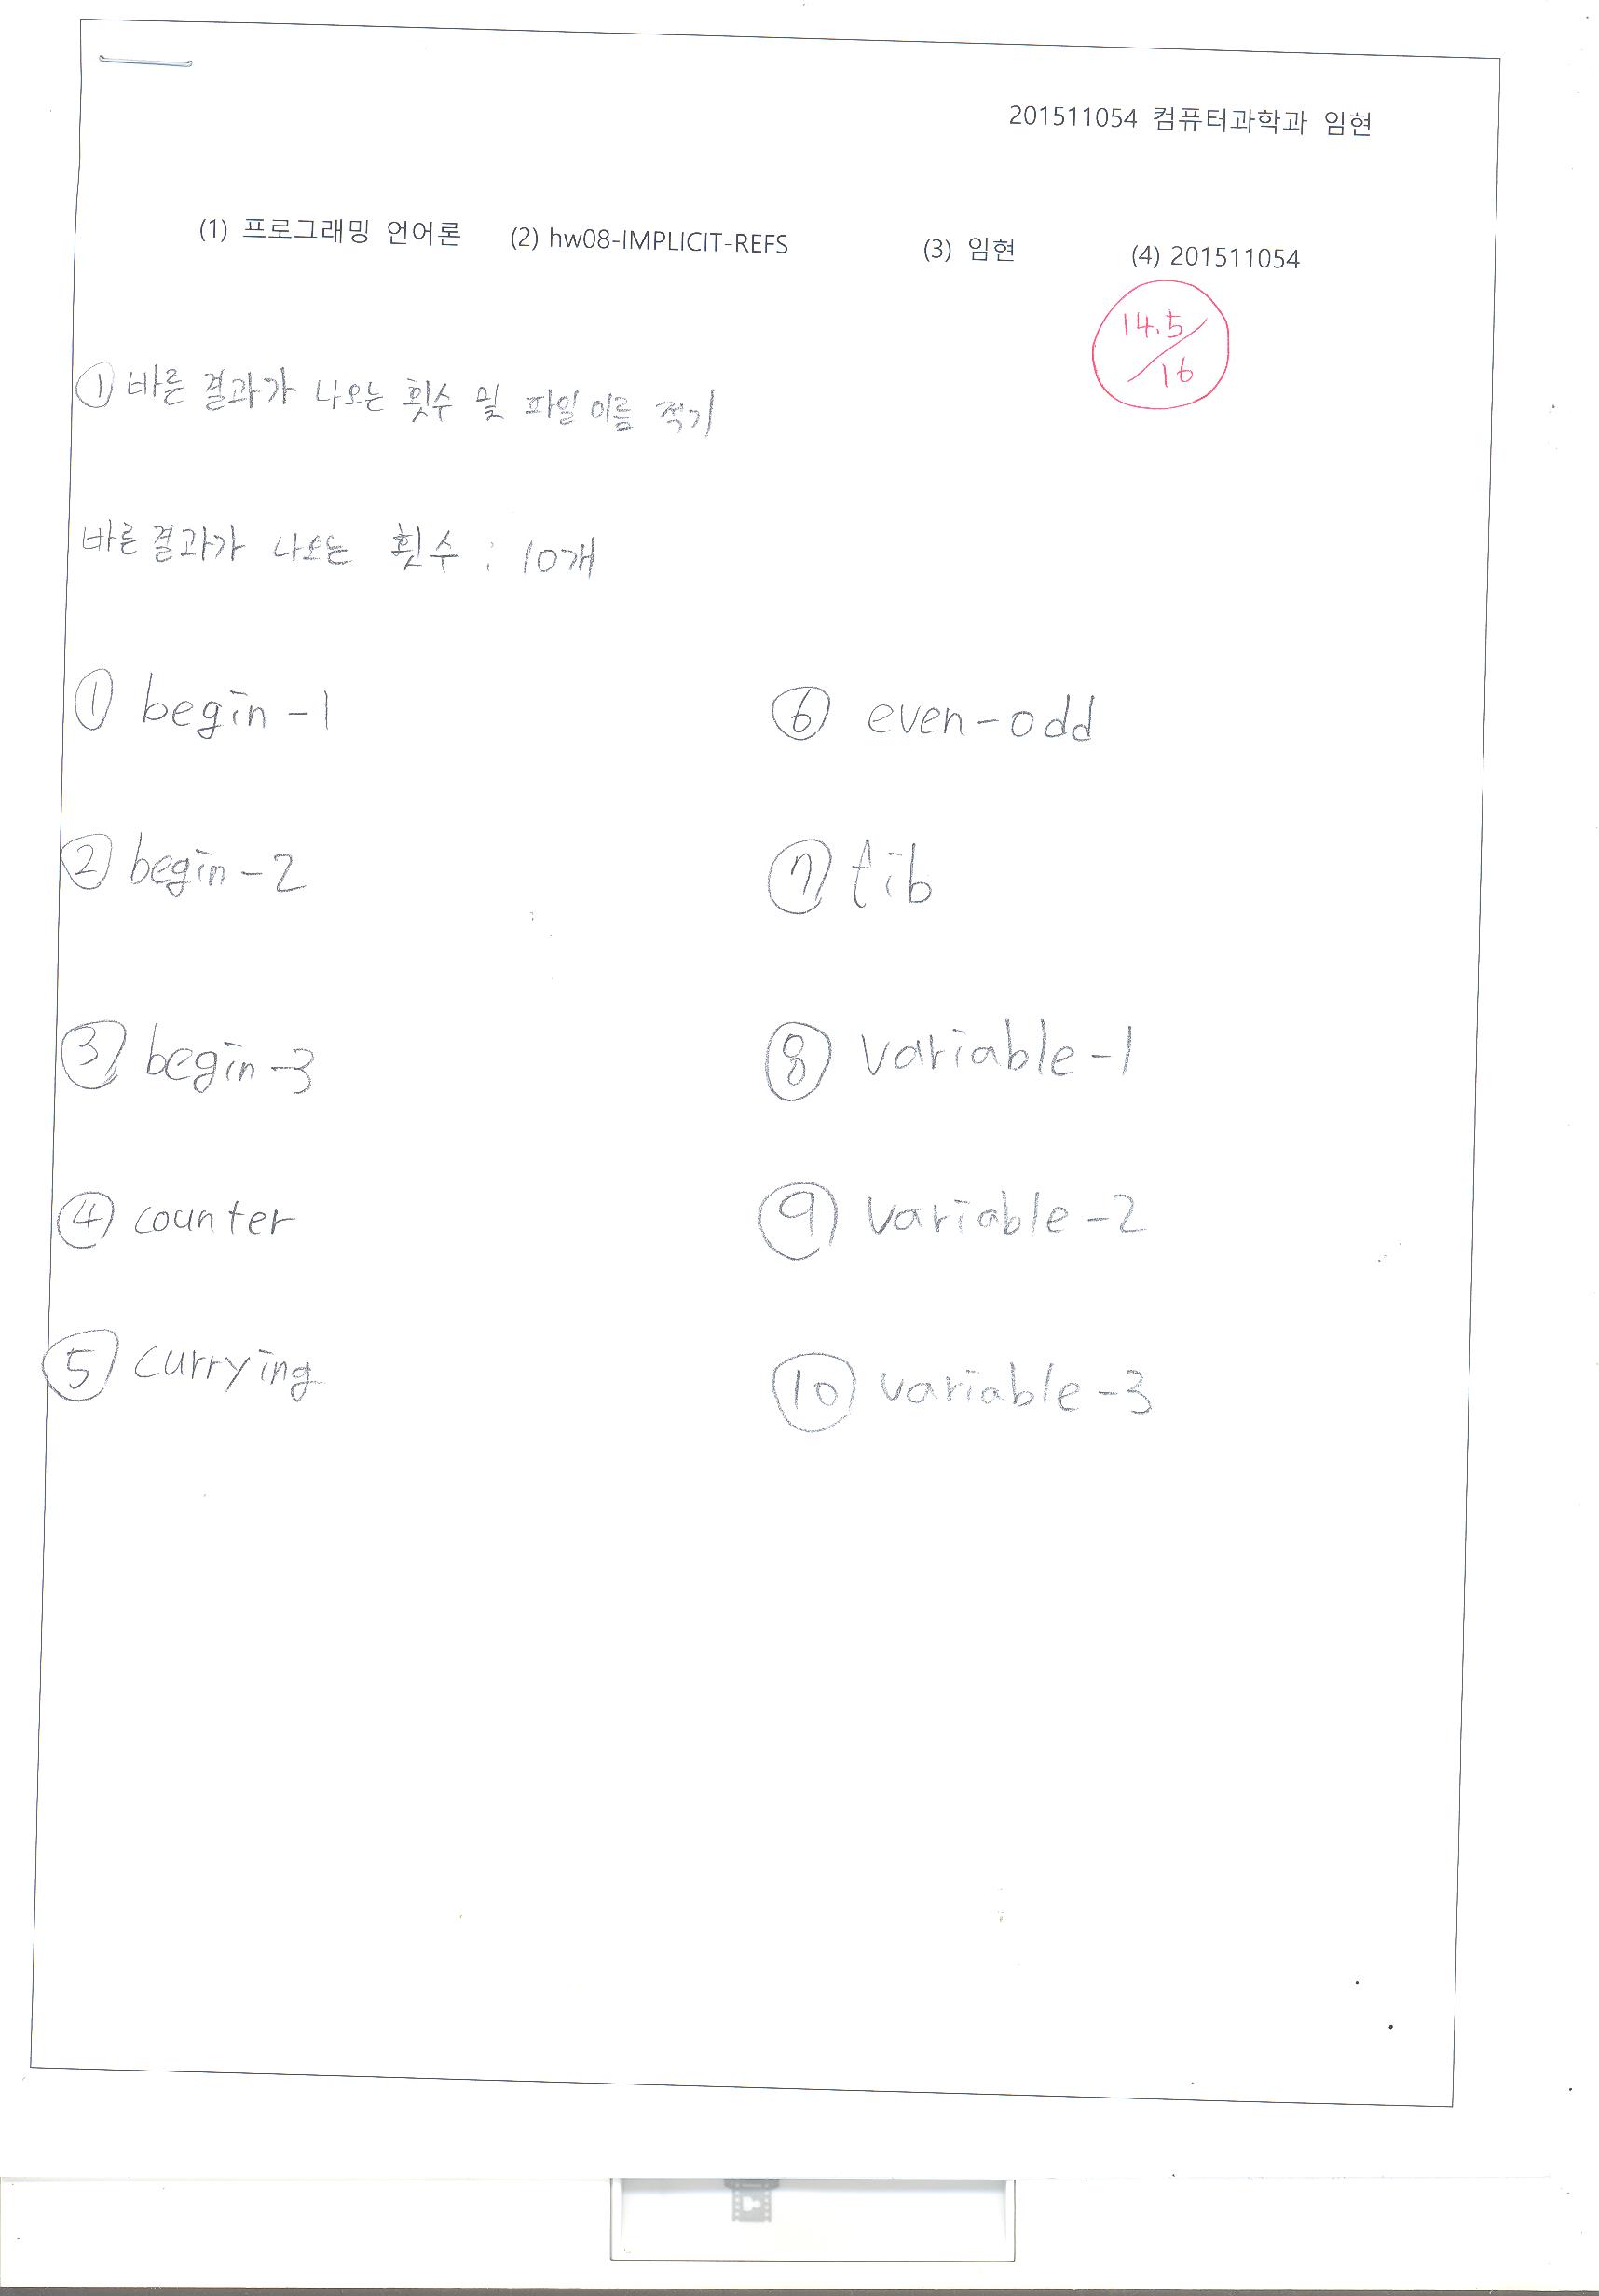 201511054 컴퓨터과학과 임현
(1) 프로그래밍 언어론 (2) hw08-IMPLICIT-REFS (3) 임현 (4) 201511054
14.5/16
① 바른 결과가 나오는 횟수 및 파일 이름 적기
바른 결과가 나오는 횟수 : 10개
① begin-1
② begin-2
③ begin-3
④ counter
⑤ currying
⑥ even-odd
⑦ fib
⑧ variable-1
⑨ variable-2
⑩ variable-3